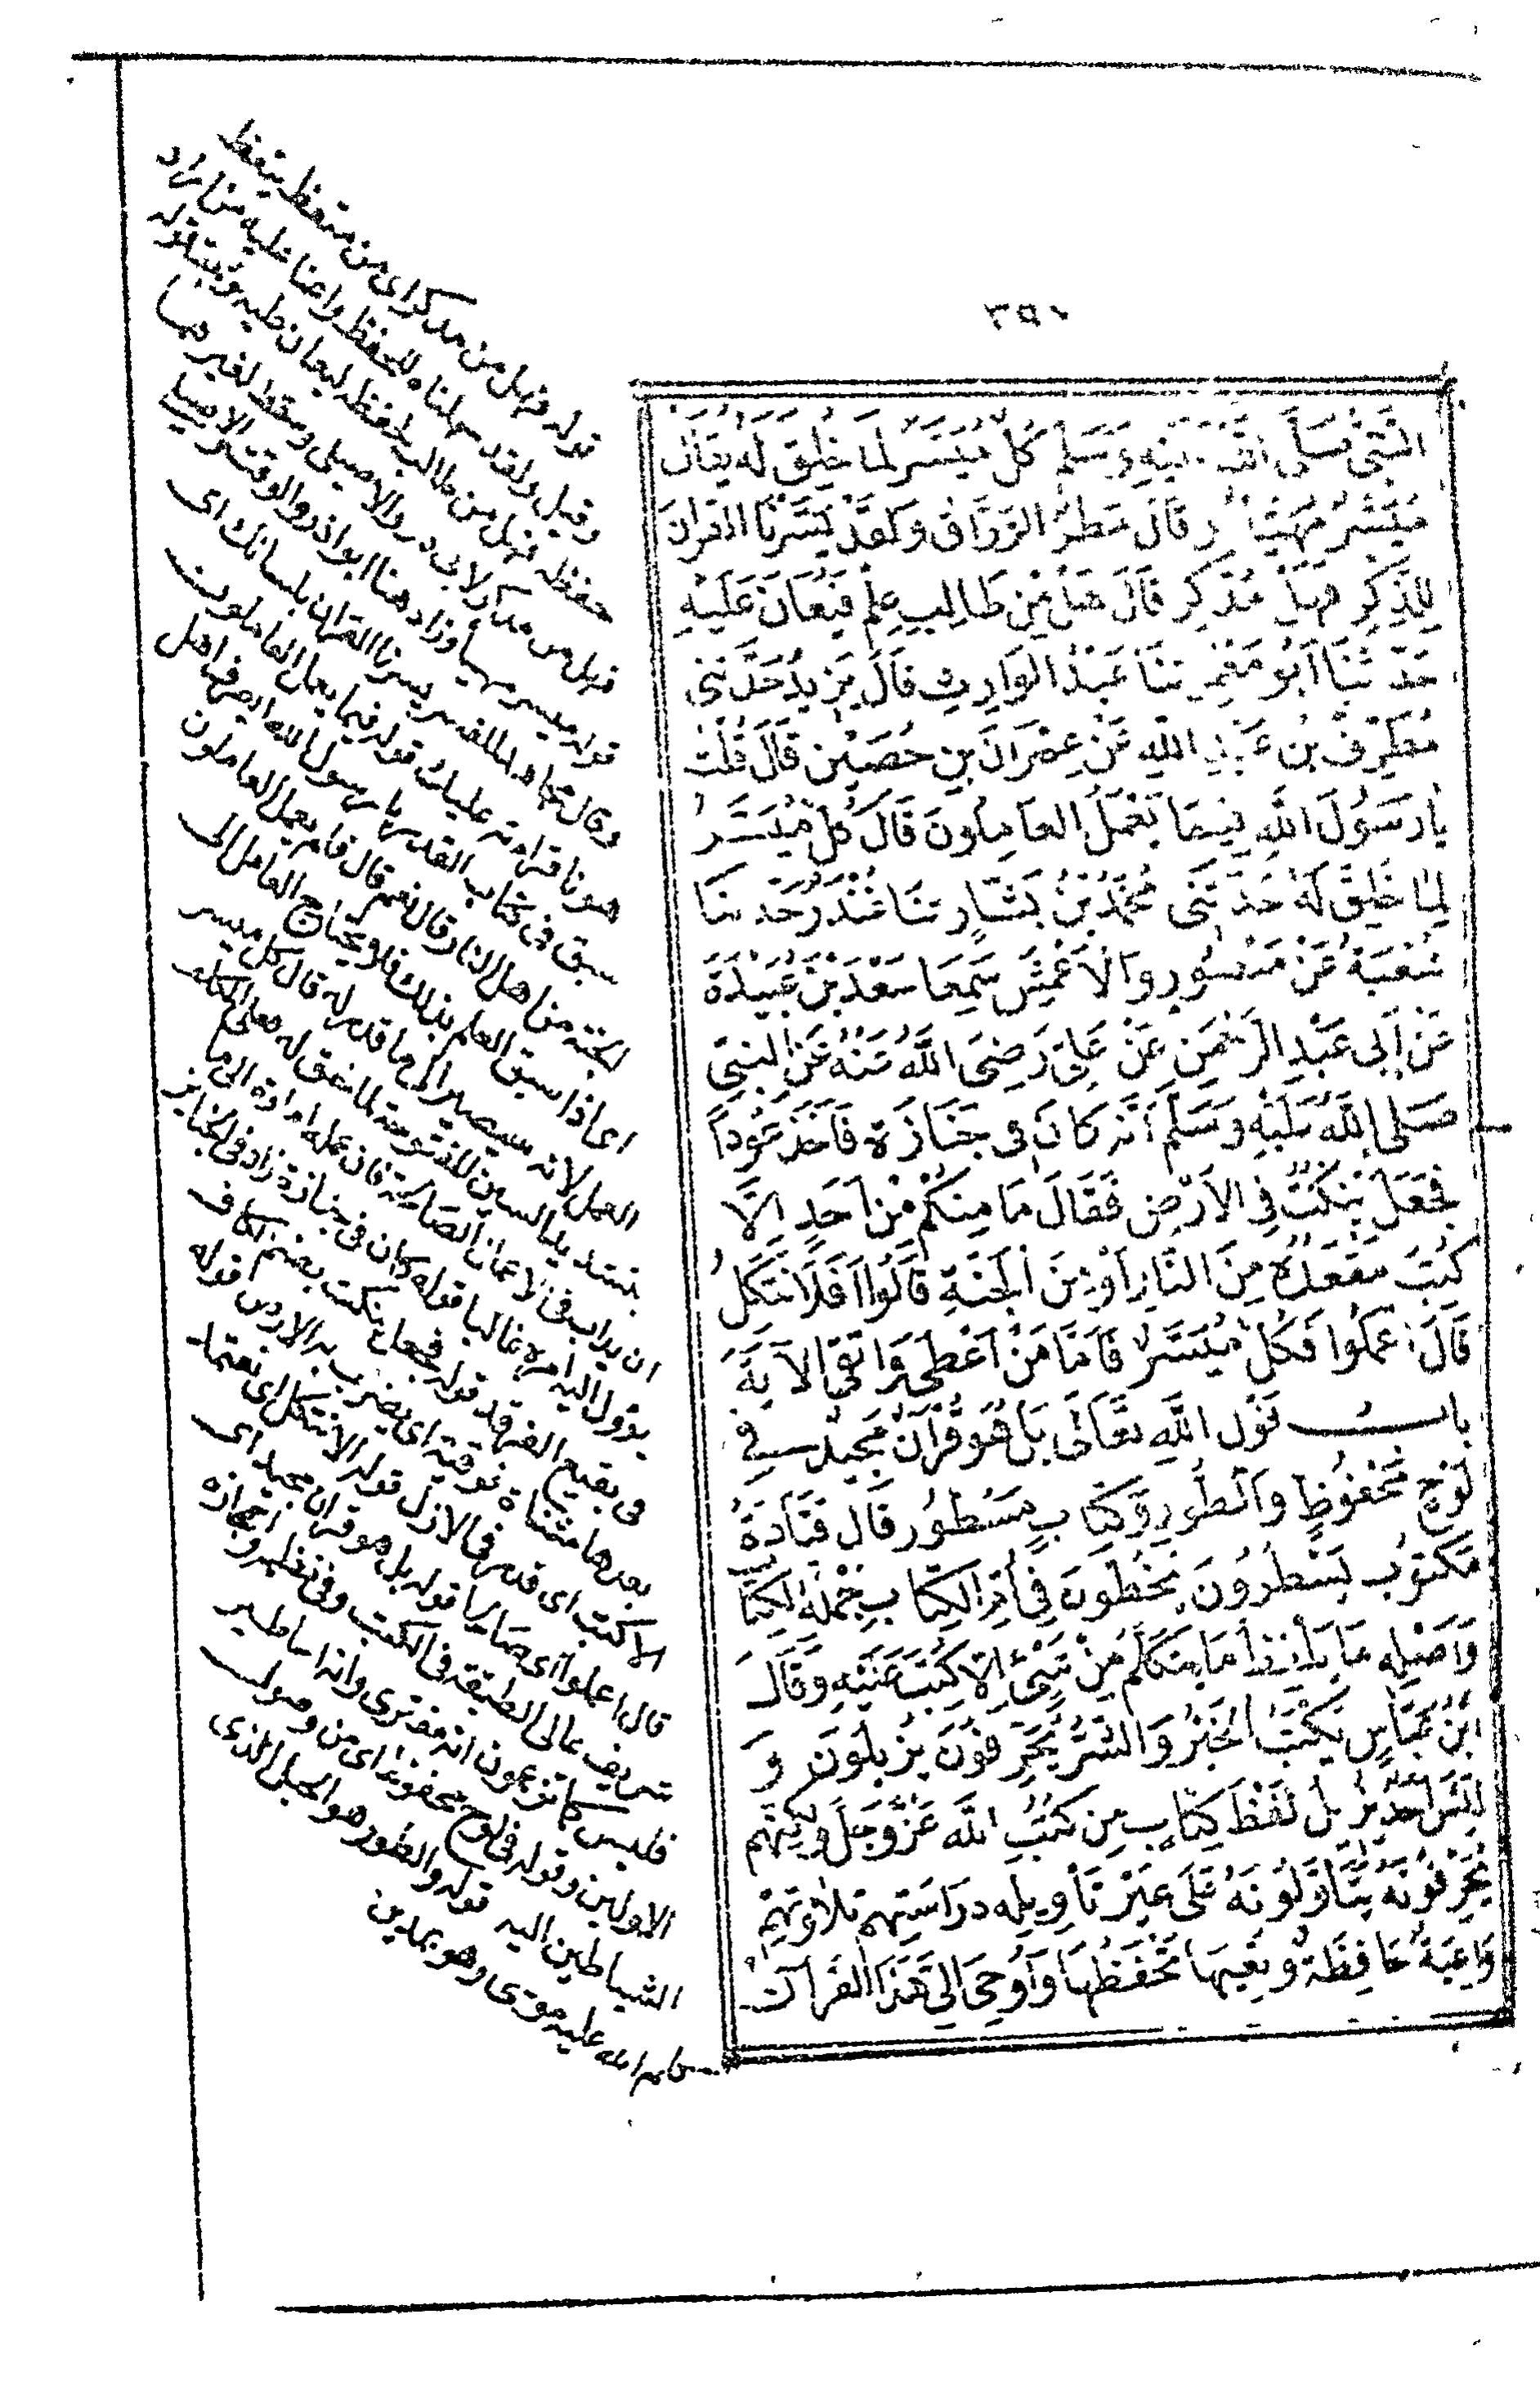 ٣٥١
النَّبِيُّ صَلَّى اللَّهُ عَلَيْهِ وَسَلَّمَ كُلٌّ مُيَسَّرٌ لِمَا خُلِقَ لَهُ يُقَالُ
مُيَسَّرٌ مُهَيَّأٌ وَقَالَ مَطَرٌ الوَرَّاقُ وَلَقَدْ يَسَّرْنَا القُرْآنَ
لِلذِّكْرِ فَهَلْ مِنْ مُدَّكِرٍ قَالَ هَلْ مِنْ طَالِبِ عِلْمٍ فَيُعَانَ عَلَيْهِ
حَدَّثَنَا أَبُو مَعْمَرٍ ثنَا عَبْدُ الوَارِثِ قَالَ يَزِيدُ حَدَّثَنِي
مُطَرِّفُ بْنُ عَبْدِ اللَّهِ عَنْ عِمْرَانَ بْنِ حُصَيْنٍ قَالَ قُلْتُ
يَا رَسُولَ اللَّهِ فِيمَا يَعْمَلُ العَامِلُونَ قَالَ كُلٌّ مُيَسَّرٌ
لِمَا خُلِقَ لَهُ حَدَّثَنِي مُحَمَّدُ بْنُ بَشَّارٍ ثنَا غُنْدَرٌ حَدَّثَنَا
شُعْبَةُ عَنْ مَنْصُورٍ وَالأَعْمَشِ سَمِعَا سَعْدَ بْنَ عُبَيْدَةَ
عَنْ أَبِي عَبْدِ الرَّحْمَنِ عَنْ عَلِيٍّ رَضِيَ اللَّهُ عَنْهُ عَنِ النَّبِيِّ
صَلَّى اللَّهُ عَلَيْهِ وَسَلَّمَ أَنَّهُ كَانَ فِي جَنَازَةٍ فَأَخَذَ عُودًا
فَجَعَلَ يَنْكُتُ فِي الأَرْضِ فَقَالَ مَا مِنْكُمْ مِنْ أَحَدٍ إِلَّا
كُتِبَ مَقْعَدُهُ مِنَ النَّارِ أَوْ مِنَ الجَنَّةِ قَالُوا أَفَلَا نَتَّكِلُ
قَالَ اعْمَلُوا فَكُلٌّ مُيَسَّرٌ فَأَمَّا مَنْ أَعْطَى وَاتَّقَى الآيَةَ
بَابُ قَوْلِ اللَّهِ تَعَالَى بَلْ هُوَ قُرْآنٌ مَجِيدٌ فِي
لَوْحٍ مَحْفُوظٍ وَالطُّورِ وَكِتَابٍ مَسْطُورٍ قَالَ قَتَادَةُ
مَكْتُوبٌ يَسْطُرُونَ يَخُطُّونَ فِي أُمِّ الكِتَابِ جُمْلَةِ الكِتَابِ
وَأَصْلِهِ مَا يَلْفِظُ مَا يَتَكَلَّمُ مِنْ شَيْءٍ إِلَّا كُتِبَ عَلَيْهِ وَقَالَ
ابْنُ عَبَّاسٍ يُكْتَبُ الخَيْرُ وَالشَّرُّ يُحَرِّفُونَ يُزِيلُونَ وَ
لَيْسَ أَحَدٌ يُزِيلُ لَفْظَ كِتَابٍ مِنْ كُتُبِ اللَّهِ عَزَّ وَجَلَّ وَلَكِنَّهُمْ
يُحَرِّفُونَهُ يَتَأَوَّلُونَهُ عَلَى غَيْرِ تَأْوِيلِهِ دِرَاسَتُهُمْ تِلَاوَتُهُمْ
وَاعِيَةٌ حَافِظَةٌ وَتَعِيَهَا تَحْفَظُهَا وَأُوحِيَ إِلَيَّ هَذَا القُرْآنُ
قوله فهل من مدكر اى من متعظ يتعظ
وقيل ولقد سهلناه للحفظ واعنا عليه من اراد
حفظه فهل من طالب لحفظه ليعان عليه وثبت قوله
فهل من مدكر لابى ذر والاصيلى وسقط لغيرهما
قوله ميسر مهيأ وزاد هنا ابوا ذر والوقت والاصيلى
وقال مجاهد المفسر يسرنا القران بلسانك اى
هونا قراءته عليك قوله فيما يعمل العاملون
سبق فى كتاب القدر يا رسول الله ايعرف اهل
الجنة من اهل النار قال نعم قال فلم يعمل العاملون
اى اذا سبق العلم بذلك فلا يحتاج العامل الى
العمل لانه سيصير الى ما قدر له قال كل ميسر
بتشديد السين المفتوحة لما خلق له فعلى المكلف
ان يداب فى الاعمال الصالحة فان عمله امارة الى ما
يؤول اليه امره غالبا قوله كان فى جنازة زاد فى الجنايز
فى بقيع الغرقد قوله فجعل ينكت بضم الكاف
بعدها مثناة فوقية اى يضرب به الارض قوله
الا كتب اى قدر فى الازل قوله الا نتكل اى نعتمد
قال اعملوا اى صايرا قوله بل هو قران مجيد اى
شريف عالى الطبقة فى الكتب وفى نظمه واعجازه
فليس كما تزعمون انه مفترى وانه اساطير
الاولين وقوله فى لوح محفوظ اى من وصول
الشياطين اليه قوله والطور هو الجبل الذى
كلم الله عليه موسى وهو بمدين